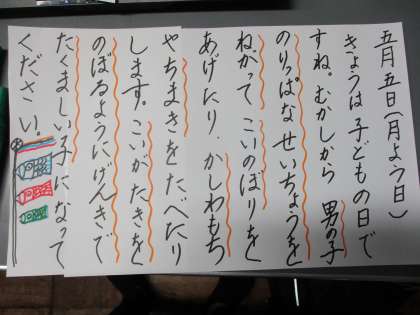 五月五日(月よう日)
きょうは子どもの日で
すね。むかしから 男の子
のりっぱなせいちょうを
ねがって こいのぼりをと
あげたり、かしわもち
やちまきをたべたり
します。こいがたきをと
のぼるようにげんきで
たくましい子になって
ください。